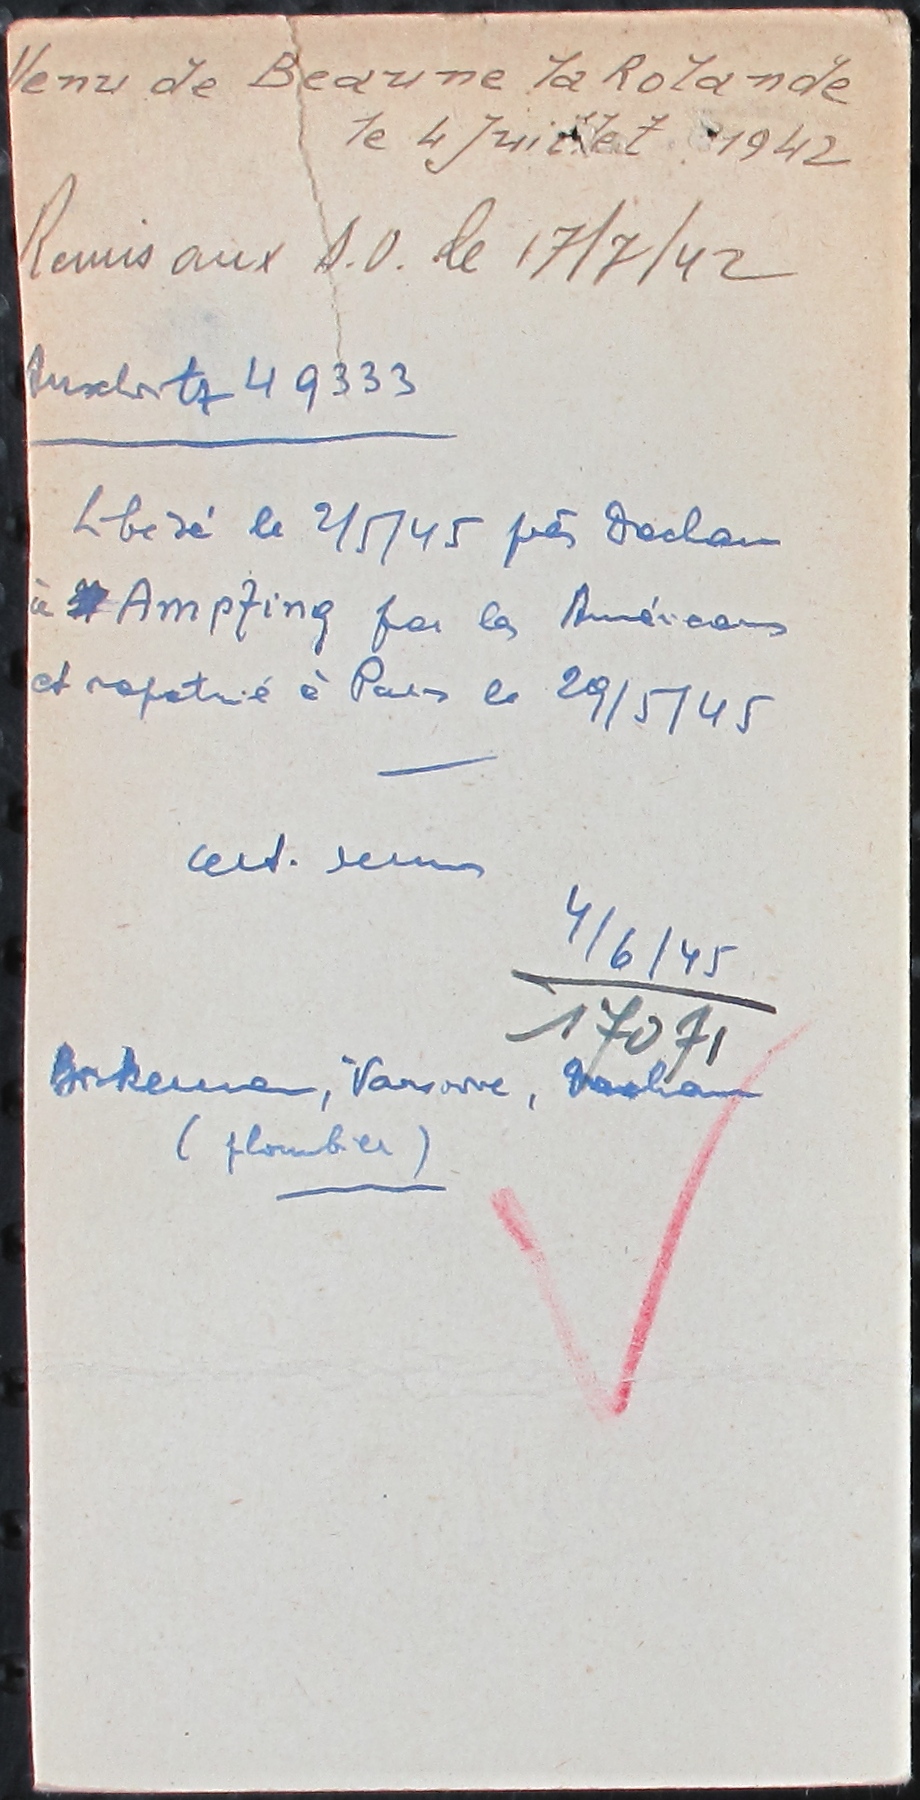 Venu de Beaune la Rolande
le 4 Juillet 1942
Remis aux A.O. le 17/7/42
Auschwitz 49333
Libéré le 2/5/45 près Dachau
à Ampfing par les Américains
et rapatrié à Paris le 29/5/45
cert. remis
4/6/45
17071
Birkenau, Varsovie, Dachau
(plombier)